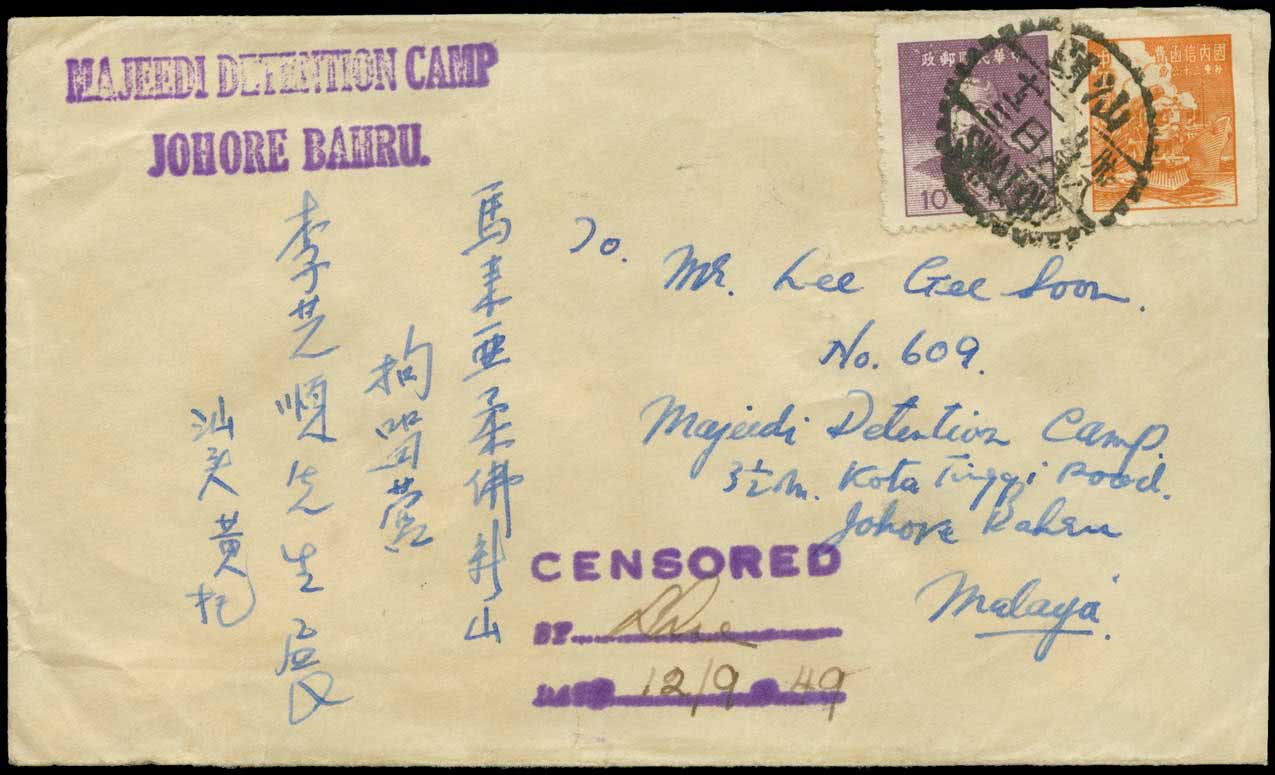 MAJEEDI DETENTION CAMP
JOHORE BAHRU.
中華民國郵政
10
國內信函費
汕頭
SWATOW
To.
Mr. Lee Gee Soon.
No. 609.
Majeedi Detention Camp.
3½ m. Kota Tinggi Road.
Johore Bahru
Malaya.
馬来亜柔佛新山
拘留营
李芝順先生啟
汕头黄托
CENSORED
BY
DATE 12/9 49